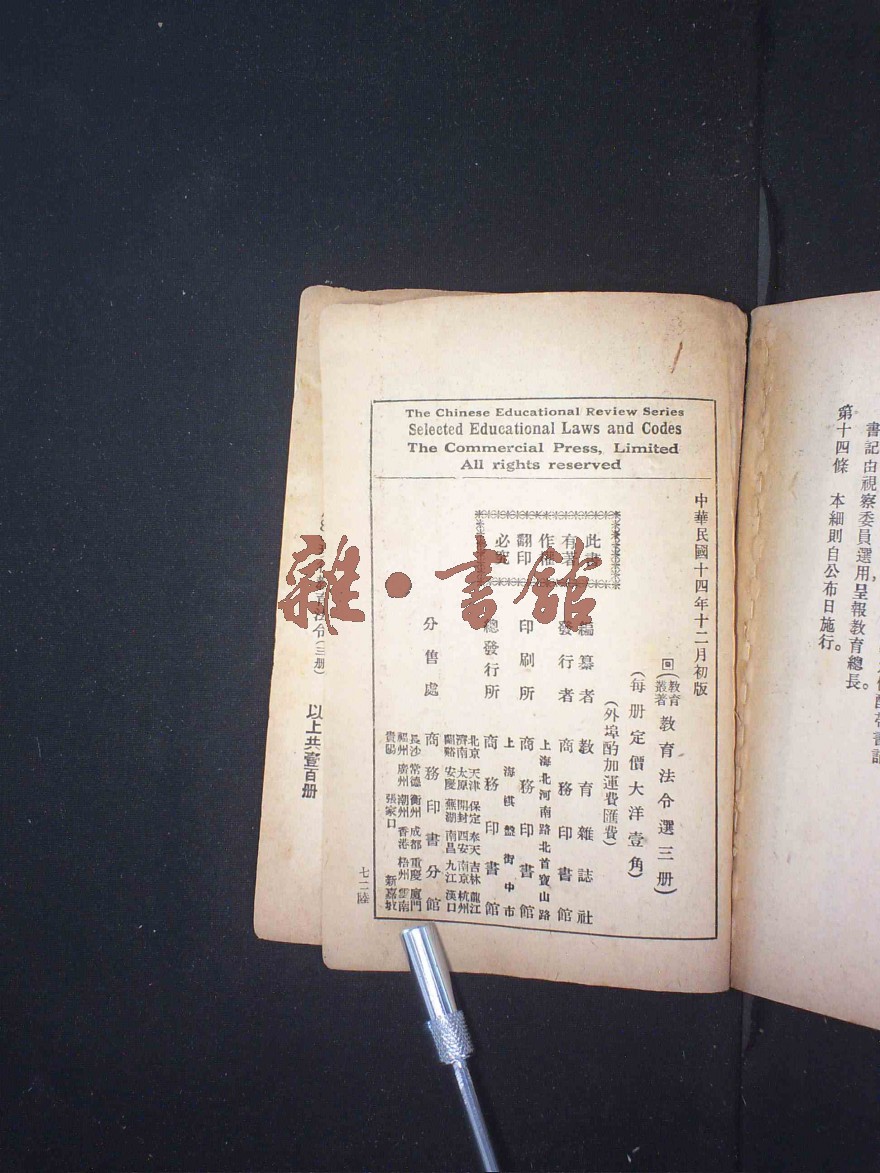 書記由視察委員選用呈報教育總長。
第十四條　本細則自公布日施行。
The Chinese Educational Review Series
Selected Educational Laws and Codes
The Commercial Press, Limited
All rights reserved
中華民國十四年十二月初版
回(教育叢著 教育法令選三册)
(每册定價大洋壹角)
(外埠酌加運費匯費)
此書
有著
作權
翻印
必究
編纂者　教育雜誌社
發行者　商務印書館
上海北河南路北首寶山路
印刷所　商務印書館
上海棋盤街中市
總發行所　商務印書館
分售處
北京 天津 保定 奉天 吉林 龍江
濟南 太原 開封 西安 南京 杭州
蘭谿 安慶 蕪湖 南昌 九江 漢口
商務印書分館
長沙 常德 衡州 成都 重慶 廈門
福州 廣州 潮州 香港 梧州 雲南
貴陽 張家口 新嘉坡
七二陸
法令(三册)
以上共壹百册
雜·書館